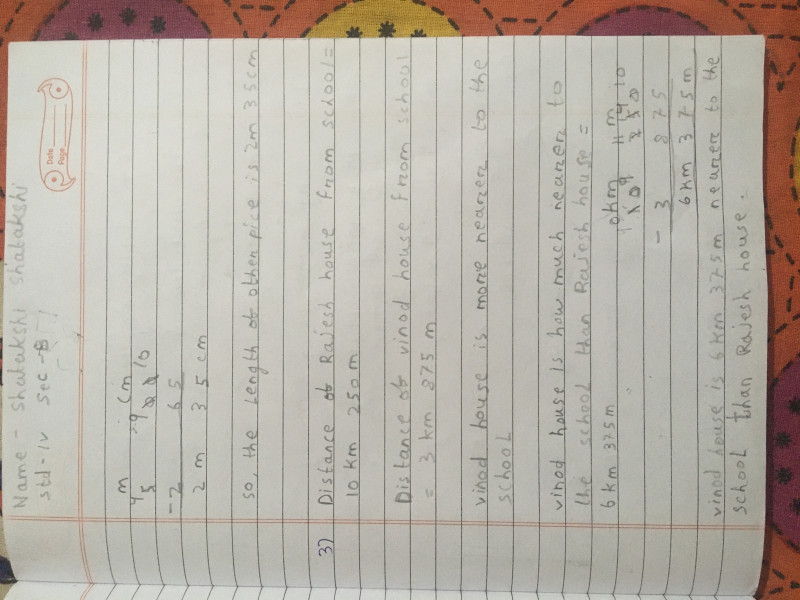 Name - Shatakshi Shatakshi
Std - IV Sec - B
Date
Page
m cm
4 9 10
5 0 0
- 2 65
2 m 35 cm
so, the Length of other pice is 2m 35cm
3) Distance of Rajesh house from school =
10 km 250 m
Distance of vinod house from school
= 3 km 875 m
vinod house is more nearer to the
school
vinod house is how much nearer to
the school than Rajesh house =
6 km 375m
km m
10 9 11 14 10
10 250
- 3 875
6 km 375m
vinod house is 6 km 375m nearer to the
school than Rajesh house.